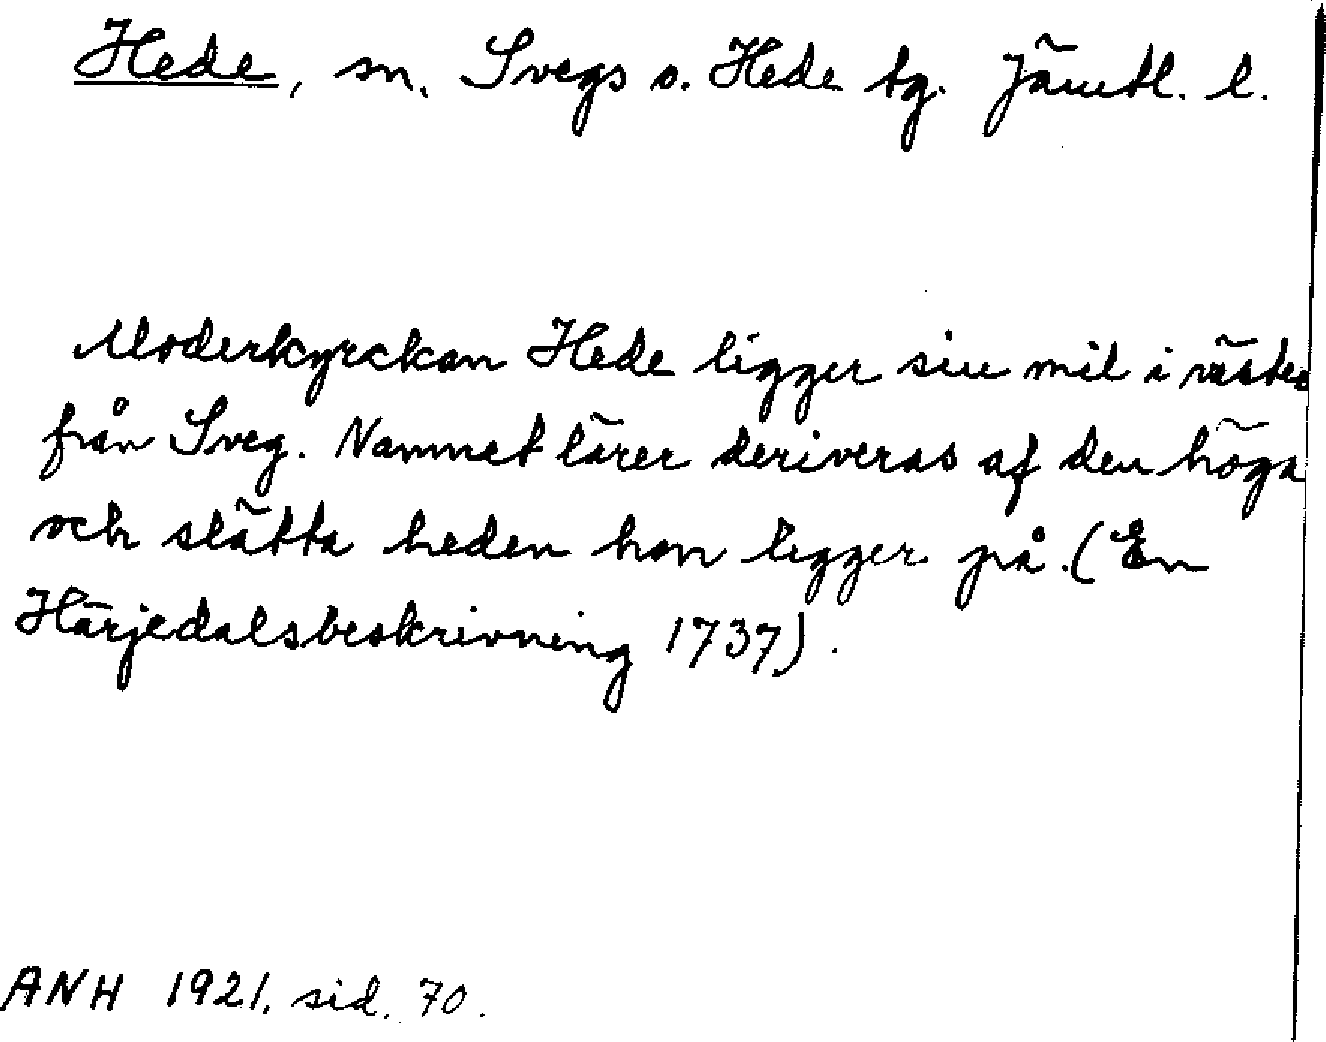 Hede, sn. Svegs o. Hede tg. Jämtl. l.
Moderkyrckan Hede ligger siu mil i väster
från Sveg. Namnet lärer deriveras af den höga
och slätta heden hon ligger på. (En
Härjedalsbeskrivning 1737).
ANH 1921. sid. 70.